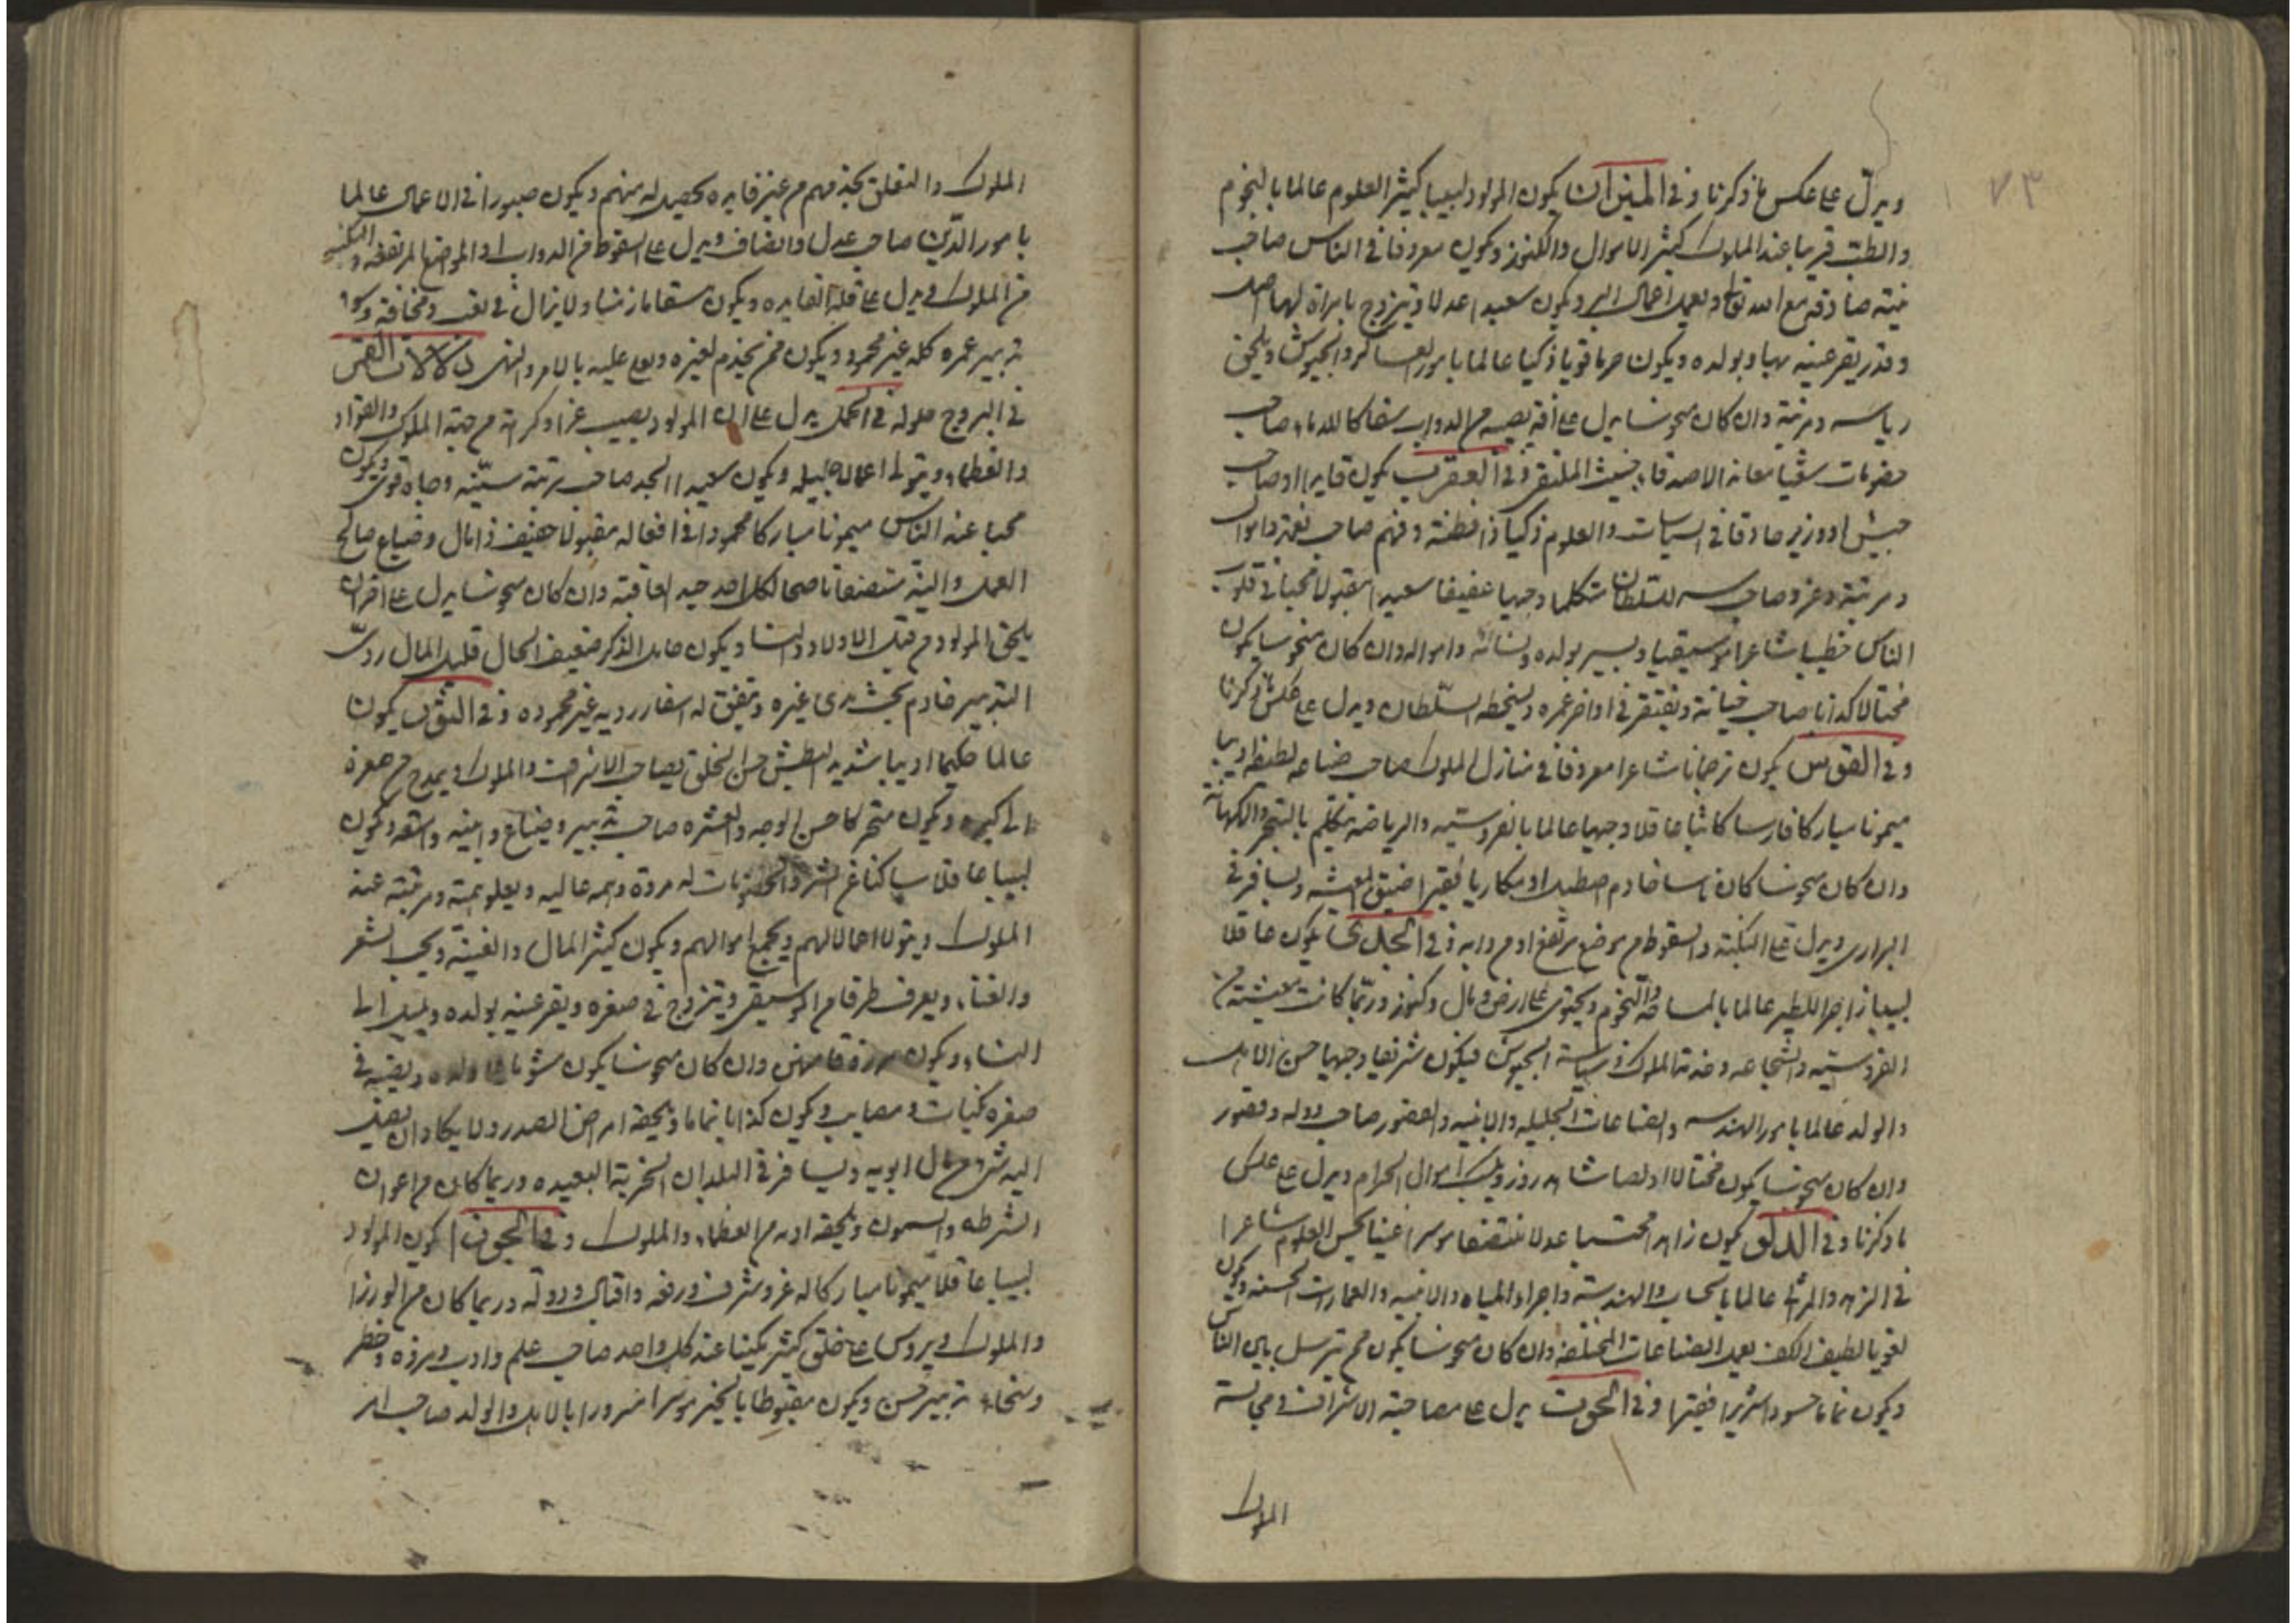 ٧٣
ويدل على عكس ما ذكرنا وفي الميزان يكون المولود لبيبا كثير العلوم عالما بالنجوم
والطب قريبا عند الملوك كثير الاموال والكنوز ويكون معروفا في الناس صاحب
نية صادقة مع الله تعالى ويعمل اعمال البر ويكون سعيدا عدلا ويتزوج بامراة لها اصل
وقدر يقر عينه بها وبولده ويكون قويا ذكيا عالما بامور العساكر والجيوش ويلحق
رياسه ومرتبة وان كان منحوسا يدل على آفة تصيبه من الدواب سفاكا للدماء صاحب
خصومات الاصدقاء خبيث وفي العقرب يكون قايدا او صاحب
جيش او وزير حاذقا في السياسات والعلوم ذكيا ذا فطنة وفهم صاحب نعمة واموال
ومرتبة وعز وصاحب سر للسلطان متكلما وجيها عفيفا سعيدا مقبولا محبا في قلوب
الناس خطيبا شاعرا موسيقيا ويسر بولده ونسائه وامواله وان كان منحوسا يكون
محتالا كذابا صاحب خيانة ويفتقر في اواخر عمره ويسخطه السلطان ويدل على عكس ما ذكرنا
وفي القوس يكون ترجمانا شاعرا معروفا في منازل الملوك صاحب صناعه لطيفه اديبا
ميمونا مباركا فارسا كاتبا عاقلا وجيها عالما بالفروسيه والرياضه يتكلم بالتنجيم والكهانه
وان كان منحوسا كان خادم اصطبل او مكاريا فقيرا ضيق المعيشه ويسافر في
البراري ويدل على النكبة والسقوط من موضع مرتفع او من دابه وفي الجدي يكون عاقلا
لبيبا زاجرا للطير عالما بالمساحه والنجوم ويحتوي على ارض ومال وكنوز وربما كانت معيشته من
الفروسيه والشجاعه وخدمة الملوك وسياسة الجيوش فيكون شريفا وجيها حسن الاهل
والولد عالما بامور الهندسه والصناعات الجليله والابنيه والقصور صاحب دوله وقصور
وان كان منحوسا يكون محتالا او لصا شاهد زور ويكسب اموال الحرام ويدل على عكس
ما ذكرنا وفي الدلو يكون زاهدا محتسبا عدلا منصفا موسرا غنيا يحسن العلوم شاعرا
في الزهد والمراثي عالما بالحساب والهندسة واجراء المياه والابنيه والعمارات الحسنه ويكون
لغويا لطيف الكف يعمل الصناعات المختلفه وان كان منحوسا يكون ممن يترسل بين الناس
ويكون نماما حسودا شريرا فقيرا وفي الحوت يدل على مصاحبة الاشراف ومجالسة
الملوك
الملوك والتعلق بخدمتهم من غير فايده تحصل له منهم ويكون صبورا في الاعمال عالما
بامور الدين صاحب عدل وانصاف ويدل على السقوط من الدواب او المواضع المرتفعه والنكبه
من الملوك ويدل على قلة الفايده ويكون سقاما ولا يزال في تعب ومخافة وسوء
تدبير عمره كله غير محمود ويكون ممن يخدم لغيره عليه بالامر والنهي دلالات القمر
في البروج حلوله في الحمل يدل على ان المولود يصيب عزا وكرامة من جهة الملوك والقواد
والعظماء ويتولى اعمال جليله ويكون سعيد الجد صاحب مرتبة سنيه وجاه قوي ويكون
محبا عند الناس ميمونا مباركا محمودا في افعاله مقبولا عفيف ذا مال وضياع صالح
العمل والنية منصفا ناصحا لكل احد جيد العاقبة وان كان منحوسا يدل على احزان
يلحق المولود من قبل الاولاد والنسا ويكون خامل الذكر ضعيف الحال قليل المال ردئ
التدبير خادم تحت يدي غيره ويتفق له اسفار رديه غير محموده وفي الثور يكون
عالما حكيما اديبا شديد البطش حسن الخلق يصاحب الاشراف والملوك ويمدح من صغره
الى كبره ويكون متحركا حسن الوجه والعشره صاحب تدبير وضياع وابنيه ويكون
لبيبا عاقلا ساكنا عن الشر والخصومات له مروة وهمه عاليه ويعلو همته ومرتبته عند
الملوك ويتولا اعمالا لهم ويجمع اموالهم ويكون كثير المال والغنيه ويحب الشعر
والغناء ويعرف طرقا من الموسيقى ويتزوج في صغره ويقر عينه بولده ويميل الى
النساء ويكون مرزوقا منهن وان كان منحوسا يكون مشوما على اولاده ويصيبه في
صغره نكبات ومصايب ويكون كذابا نماما ويلحقه امراض الصدر ولا يكاد ان يصل
اليه شئ من مال ابويه ويسافر في البلدان الخربة البعيده وربما كان من اعوان
الشرطه والسجون ويلحقه اذيه من العظماء والملوك وفي الجوزا يكون المولود
لبيبا عاقلا ميمونا مباركا له عز وشرف ورفعه واقبال ودولة وربما كان من الوزرا
والملوك ويروس على خلق كثير مكينا عند كل واحد صاحب علم وادب ومروة وخطر
وسخاء تدبير حسن ويكون مغبوطا بالخير موسرا مسرورا بالاهل والولد صاحب امر